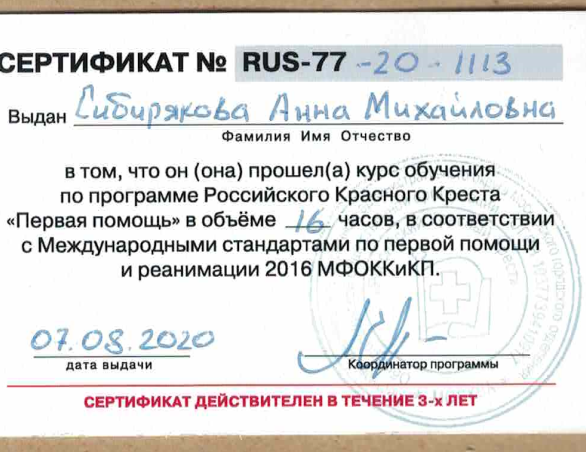 СЕРТИФИКАТ № RUS-77 -20-1113
Выдан Сибирякова Анна Михайловна
Фамилия Имя Отчество
в том, что он (она) прошел(а) курс обучения
по программе Российского Красного Креста
«Первая помощь» в объёме 16 часов, в соответствии
с Международными стандартами по первой помощи
и реанимации 2016 МФОККиКП.
07.08.2020
дата выдачи
Координатор программы
СЕРТИФИКАТ ДЕЙСТВИТЕЛЕН В ТЕЧЕНИЕ 3-х ЛЕТ